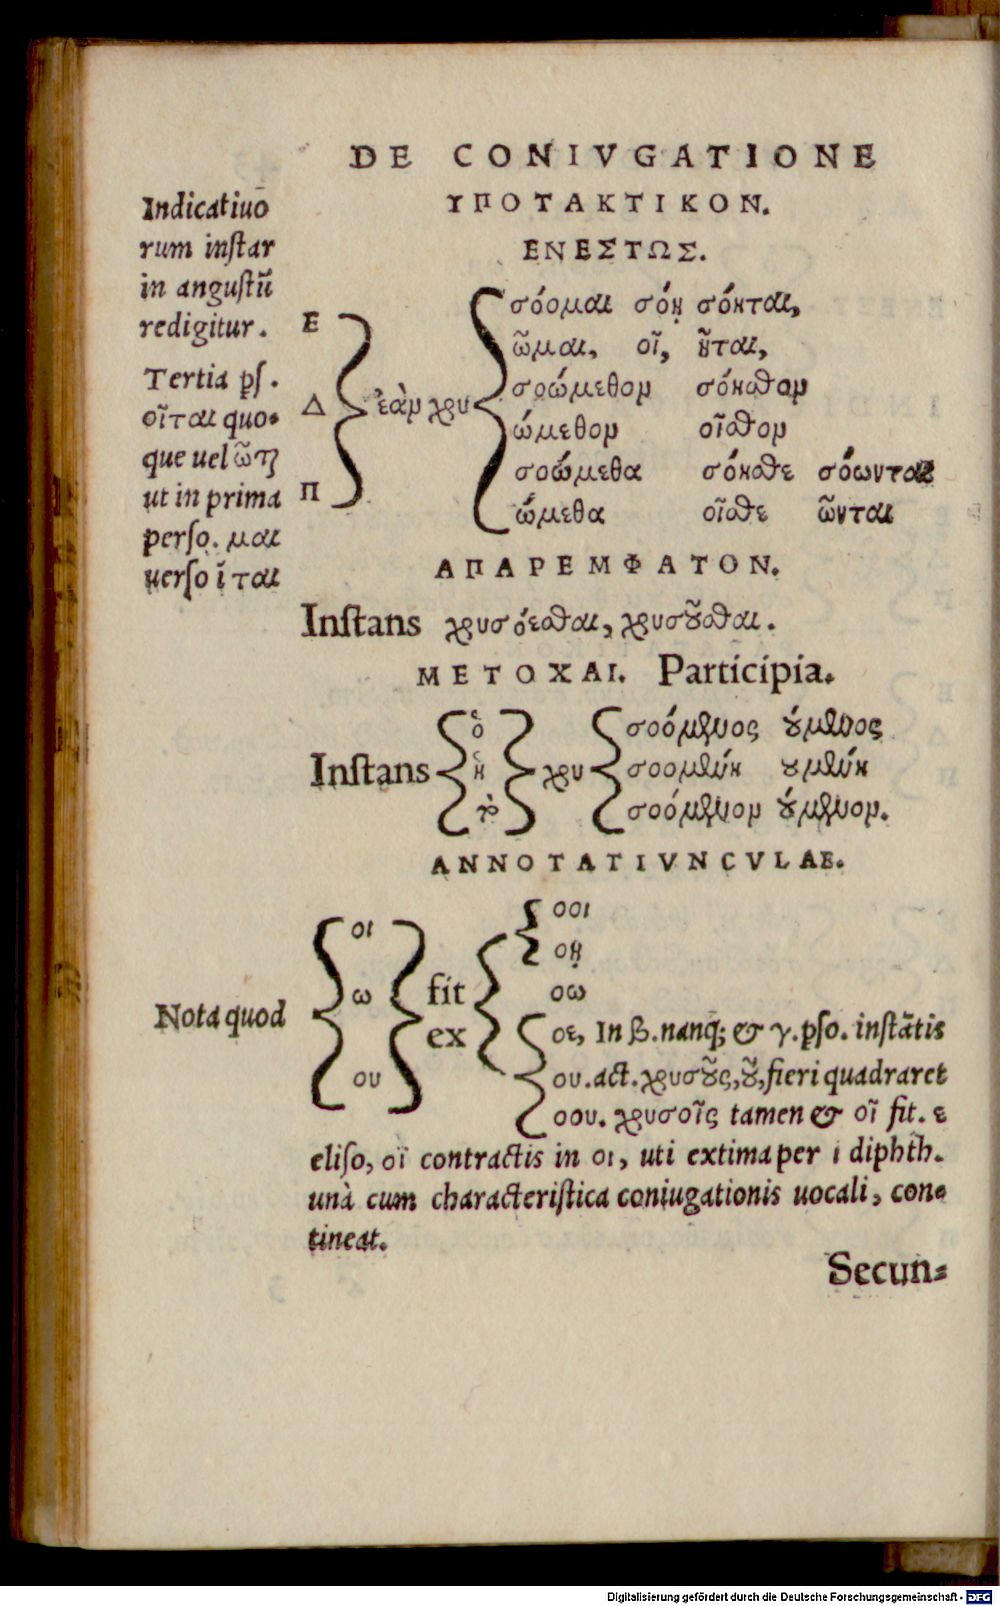 DE CONIVGATIONE
ΥΠΟΤΑΚΤΙΚΟΝ.
ΕΝΕΣΤΩΣ.
Indicatiuo
rum instar
in angustũ
redigitur.
Tertia ꝑs.
οῖται quo-
que uel ῶτ
ut in prima
perso. μαι
uerso ĩ ται
Ε
Δ ἐὰν χρυ
Π
σόομαι σόῃ σόηται,
ῶμαι, οῖ, ȣ͂ται,
σοώμεθον σόησθον
ώμεθον οῖσθον
σοώμεθα σόησθε σόωνται
ώμεθα οῖσθε ῶνται
ΑΠΑΡΕΜΦΑΤΟΝ.
Instans χρυσόεσθαι, χρυσȣ͂σθαι.
ΜΕΤΟΧΑΙ. Participia.
Instans
ὁ
ἡ
τὸ
χρυ
σοόμενος ȣ́μενος
σοομένη ȣμένη
σοόμενον ȣ́μενον.
ANNOTATIVNCVLAE.
Nota quod
οι
ω
ου
fit
ex
οοι
οῃ
οω
οε, In β. nanq; & γ. ꝑso. instãtis
ου. act. χρυσȣ͂ς, ȣ͂, fieri quadraret
οου. χρυσοῖς tamen & οῖ fit. ε
eliso, οϊ contractis in οι, uti extima per ι diphth.
unà cum characteristica coniugationis uocali, con-
tineat.
Secun-
Digitalisierung gefördert durch die Deutsche Forschungsgemeinschaft - DFG